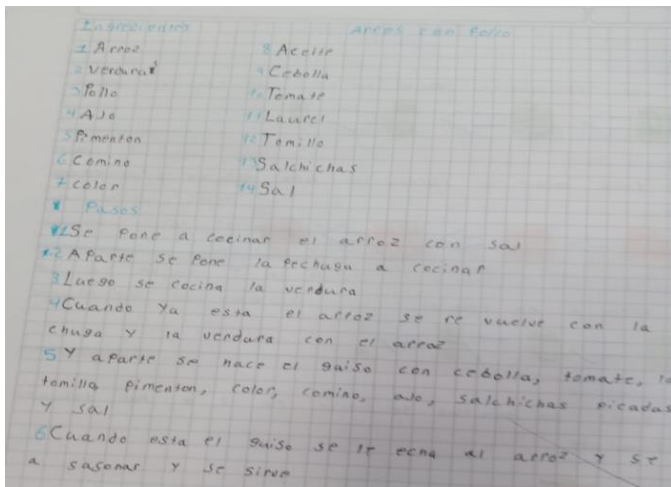 Ingredientes
Arros con Pollo
1 Arroz
2 verduras
3 Pollo
4 AJo
5 Pimenton
6 Comino
7 color
8 Aceite
9 Cebolla
10 Tomate
11 Laurel
12 Tomillo
13 Salchichas
14 Sal
Pasos
1 Se Pone a cocinar el arroz con sal
2 Aparte se Pone la Pechuga a cocinar
3 Luego se cocina la verdura
4 Cuando Ya esta el arroz se re vuelve con la
chuga Y la verdura con el arroz
5 Y aparte se hace el guiso con cebolla, tomate,
tomillo, Pimenton, color, comino, ajo, salchichas Picadas
Y sal
6 Cuando esta el guiso se le echa al arroz Y se
a sasonar Y se sirve